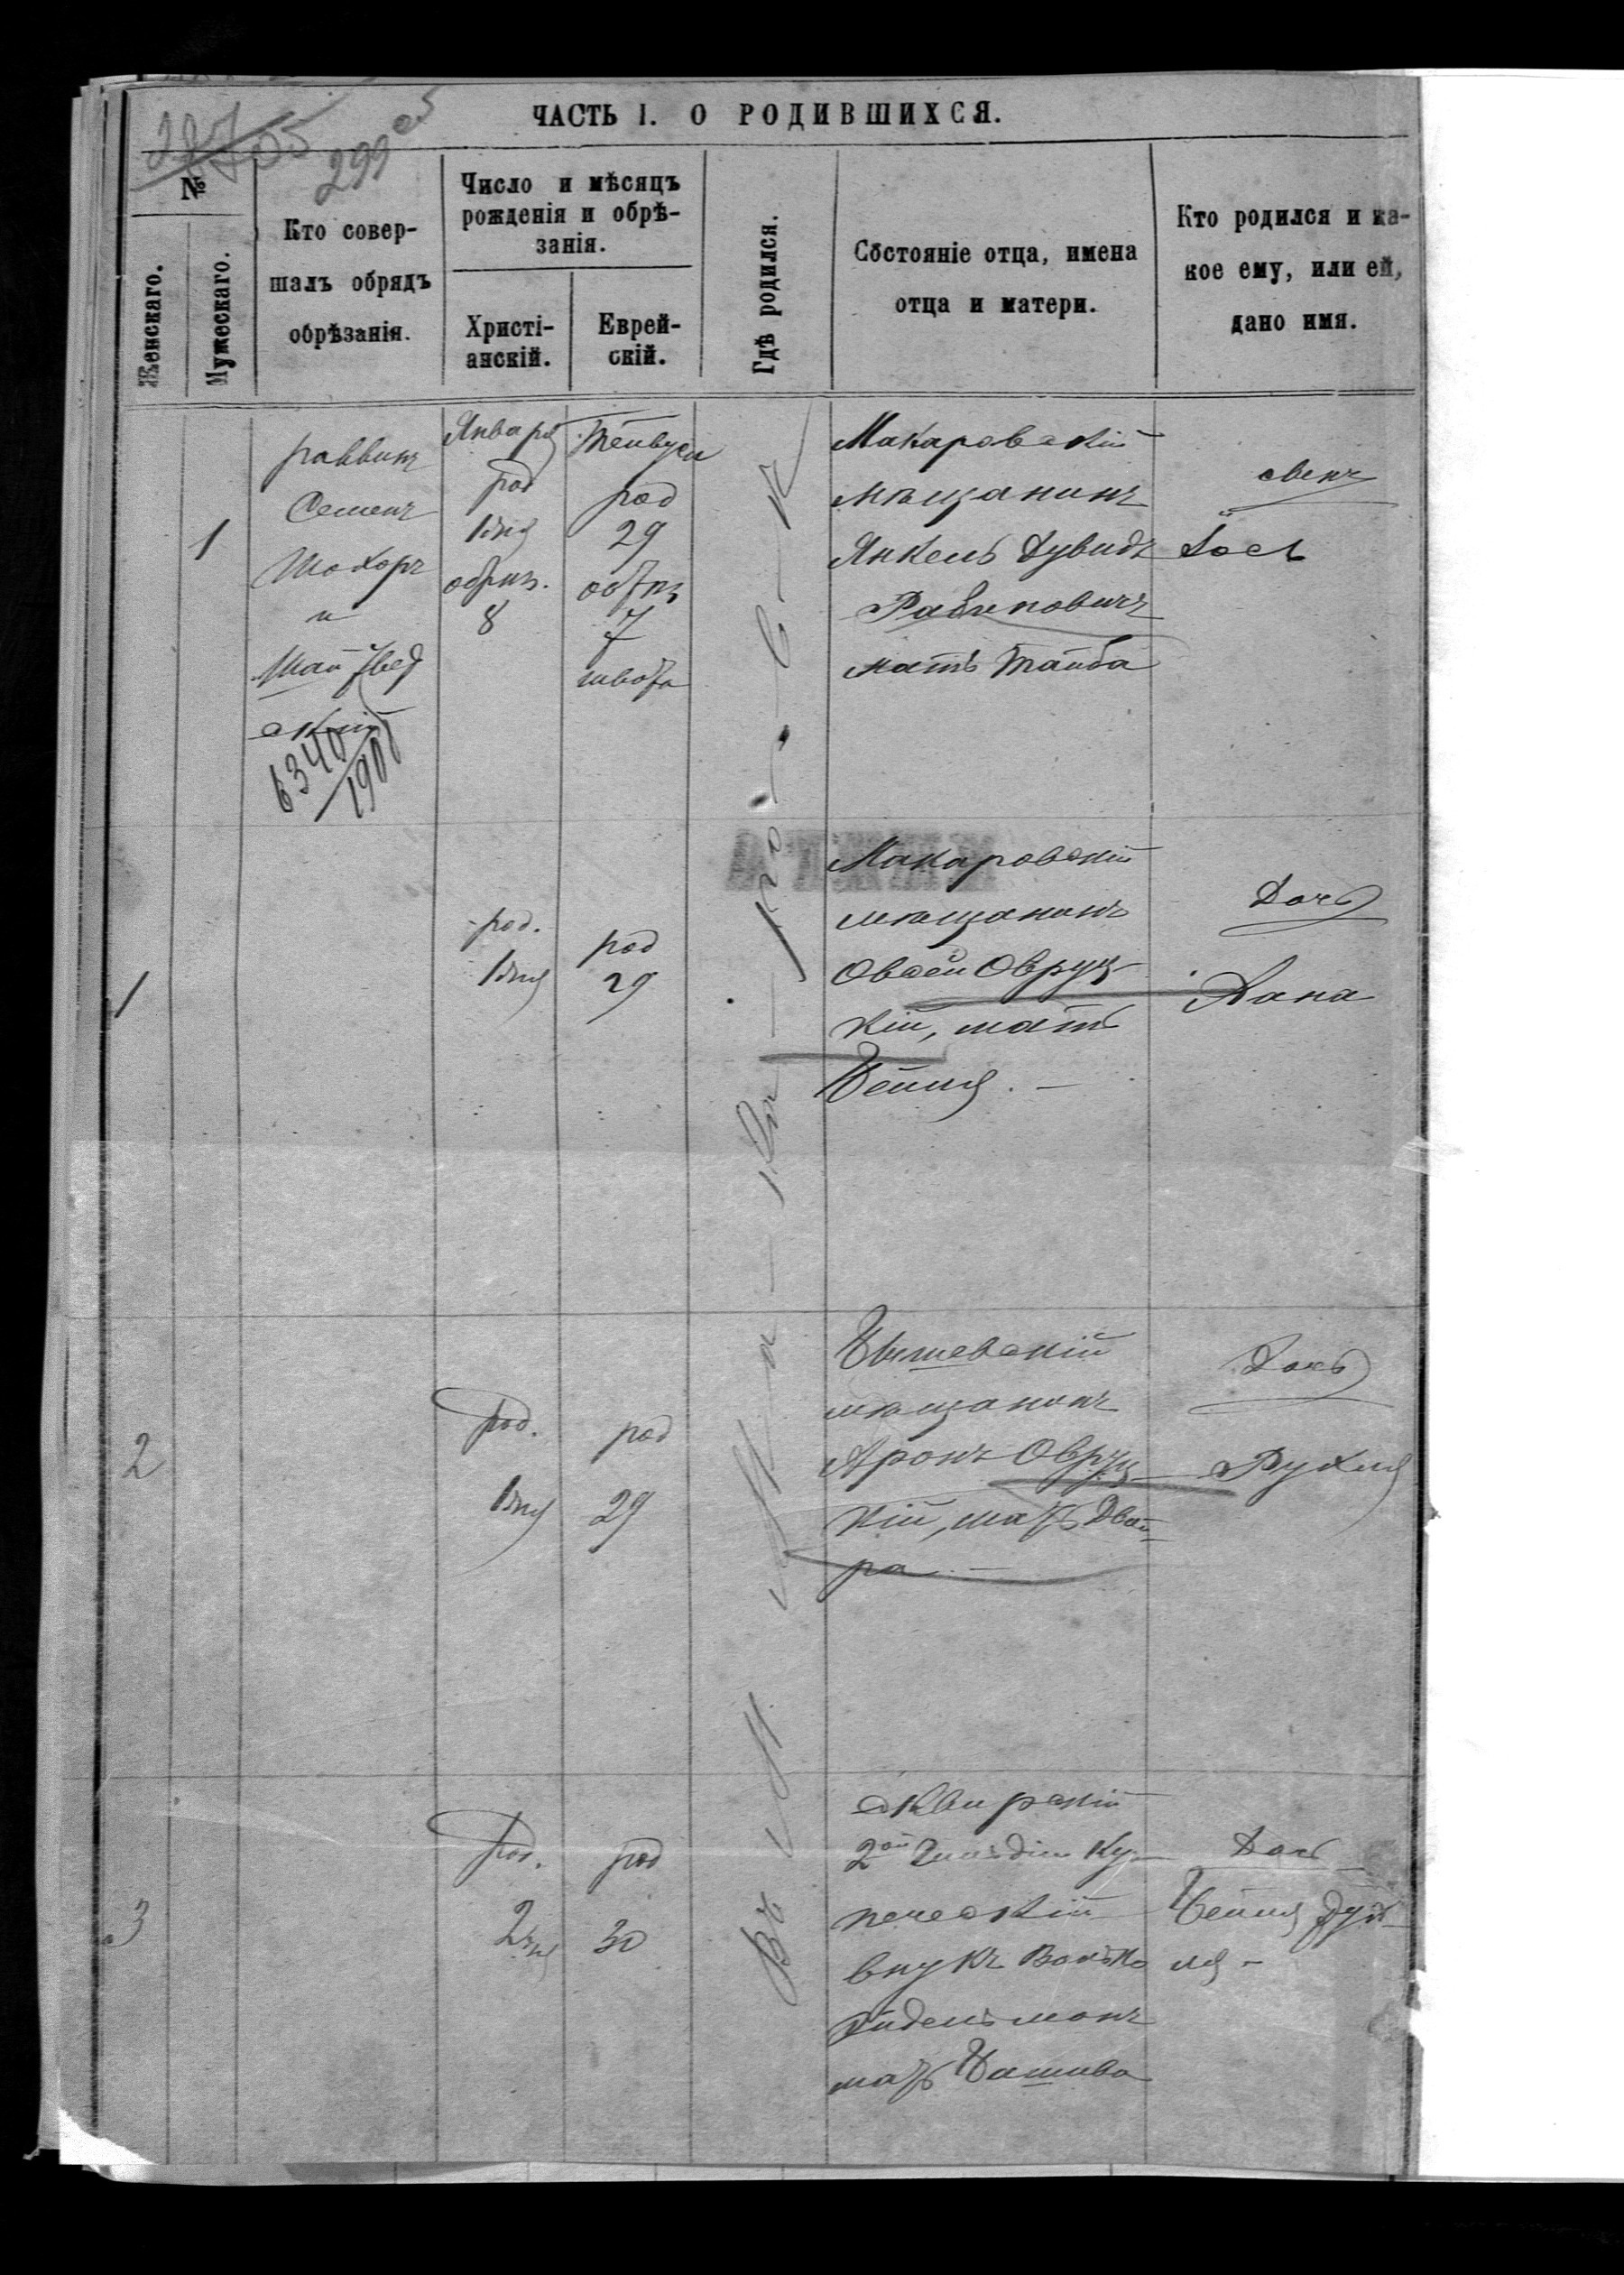 ЧАСТЬ I. О РОДИВШИХСЯ.
299 об
№
Женскаго.
Мужескаго.
Кто совер-
шалъ обрядъ
обрѣзанія.
Число и мѣсяцъ
рожденія и обрѣ-
занія.
Христі-
анскій.
Еврей-
скій.
Гдѣ родился.
Состояніе отца, имена
отца и матери.
Кто родился и ка-
кое ему, или ей,
дано имя.
1
раввинъ
Семенъ
и
6340
Января
род
1го
обрѣз.
8
род
29
обрѣз
7
швота
Макаровскій
мѣщанинъ
Янкель Дувидъ
Рабиновичъ
мать Тайба
сынъ
1
род.
1го
род
29
Макаровскій
мѣщанинъ
Овсей Овруц-
кій, мать
Дочь
Хана
2
род.
1го
род
29
мѣщанинъ
Аронъ Овруц-
кій, мать Двой-
ра
Дочь
Рухля
3
род.
2го
род
30
сквирскій
2ой гильдіи ку-
печескій
внукъ
мать
Дочь
Въ м. М а